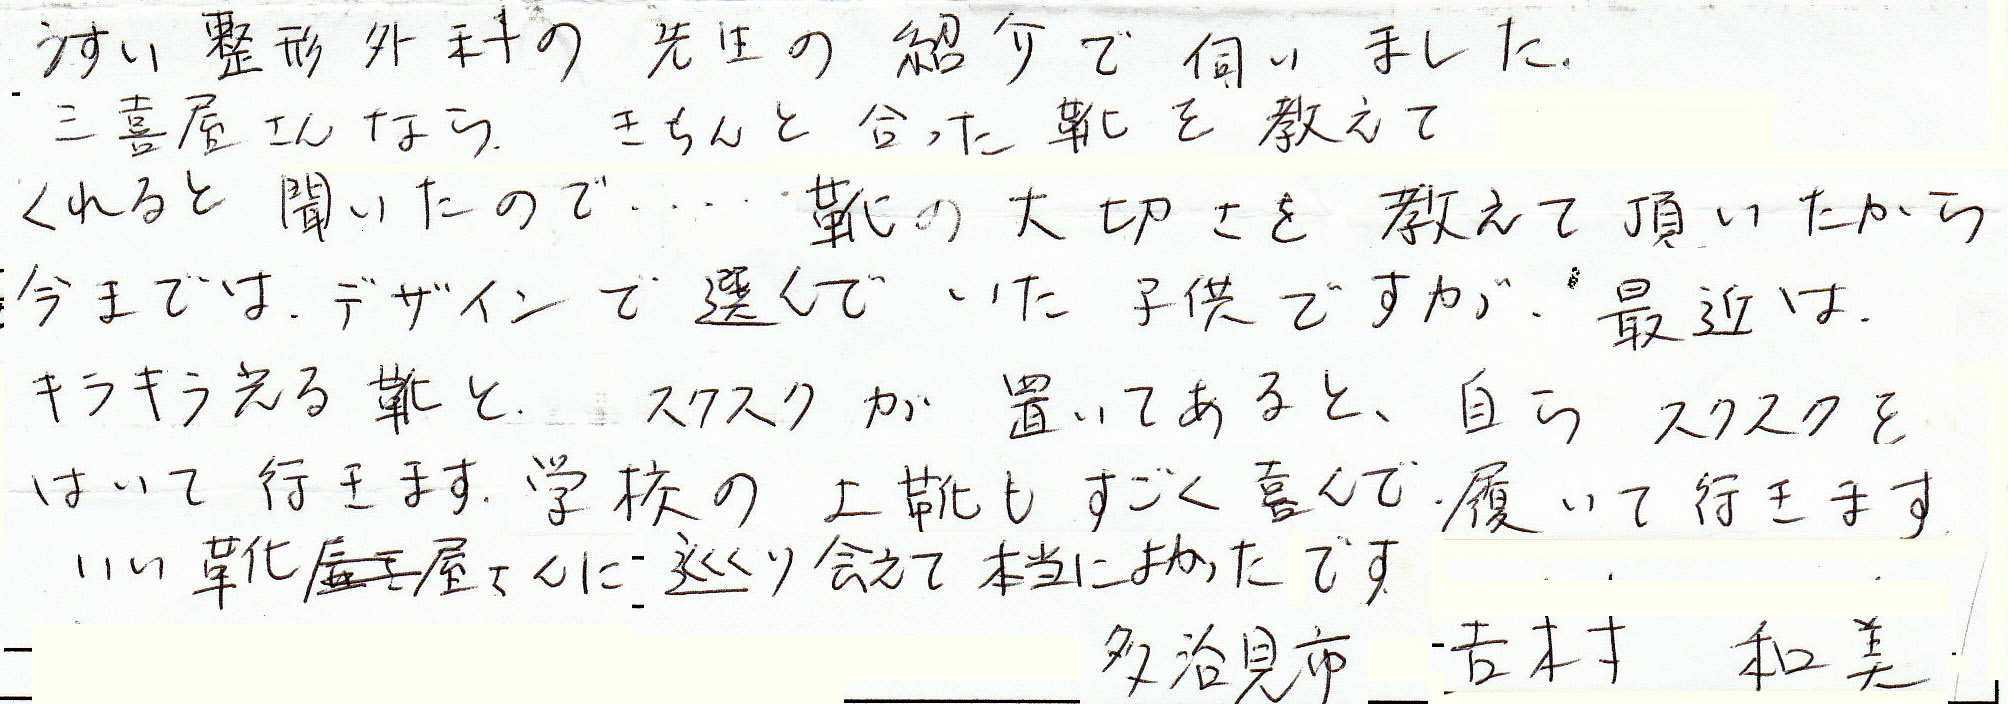 うすい整形外科の先生の紹介で伺いました.
三喜屋さんなら. きちんと合った靴を教えて
くれると聞いたので‥‥‥靴の大切さを教えて頂いたから
今までは.デザインで選んでいた子供ですが.最近は.
キラキラ光る靴と. スクスクが置いてあると、自らスクスクを
はいて行きます.学校の上靴もすごく喜んで.履いて行きます.
いい靴屋さんに巡り会えて本当によかったです
多治見市 吉村 和美